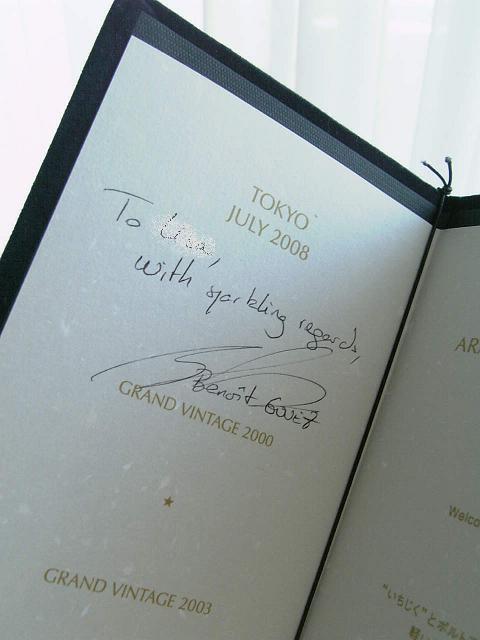 TOKYO
JULY 2008
To
with sparkling regards,
Benoît Gouez
GRAND VINTAGE 2000
GRAND VINTAGE 2003
AR
Welco
"いちじく"とポルト
軽